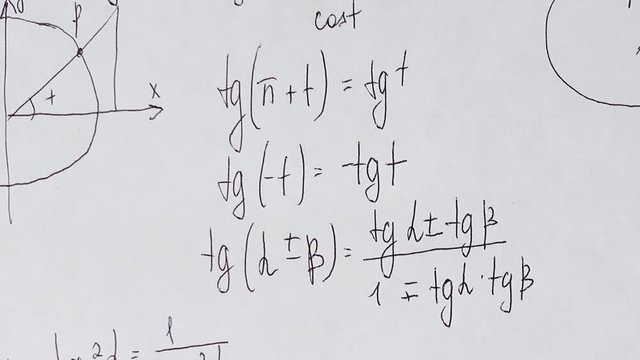 cost
P
x
t
tg(π + t) = tgt
tg(-t) = -tgt
tg(α ± β) = (tgα ± tgβ) / (1 ∓ tgα · tgβ)